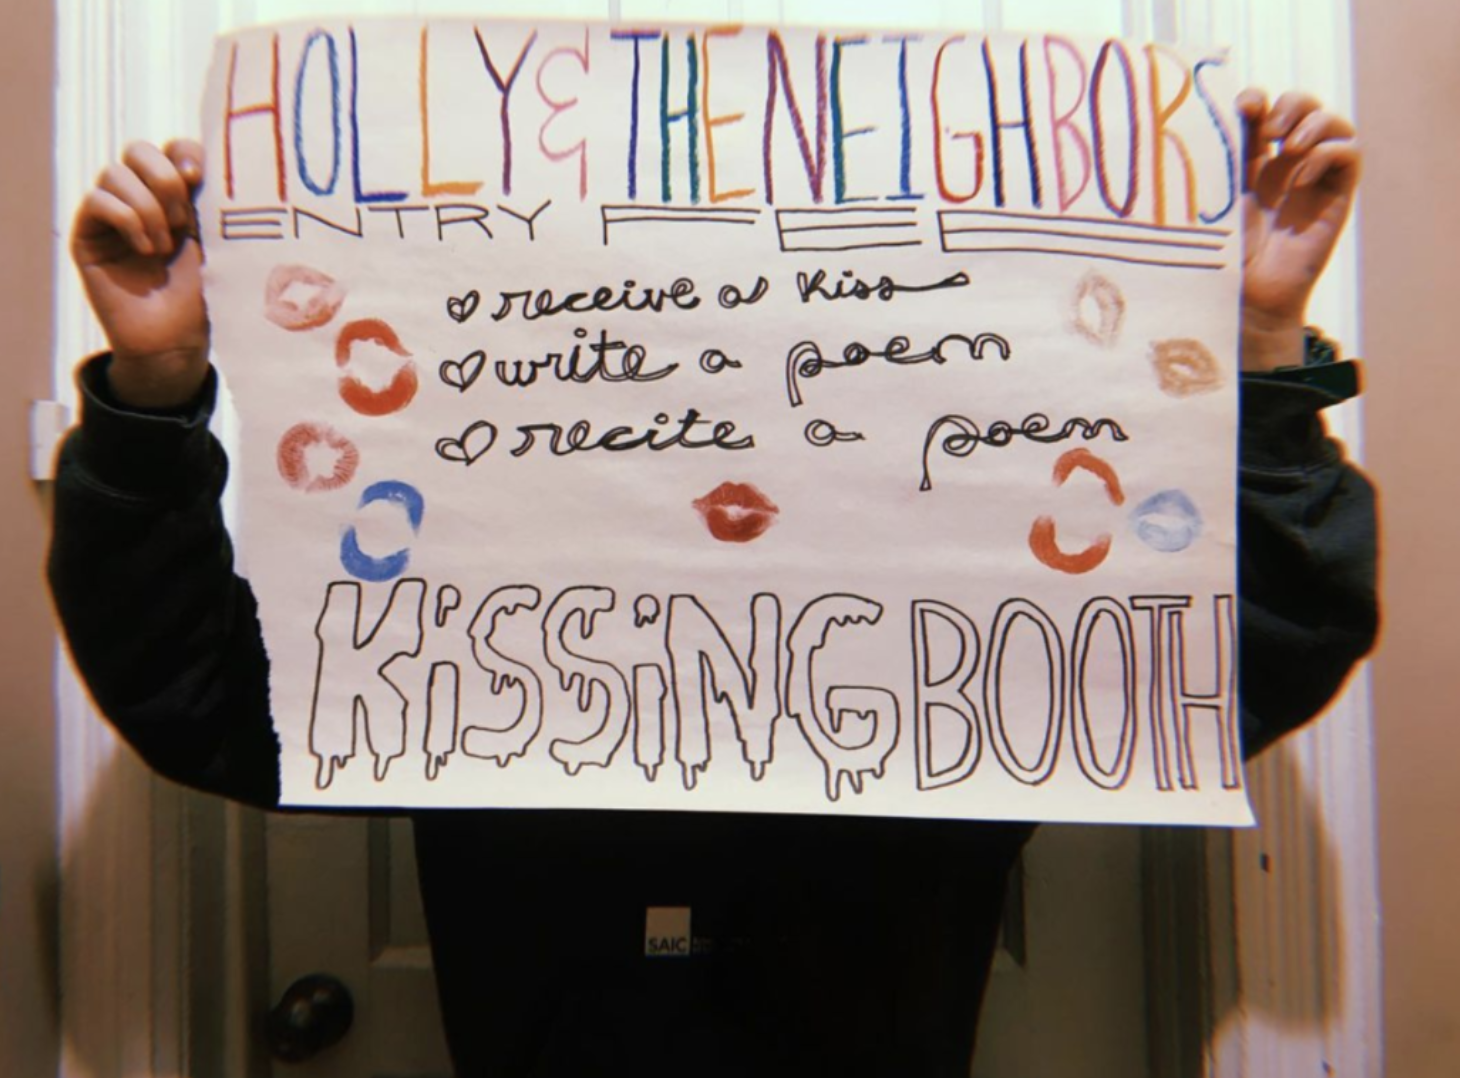 HOLLY & THE NEIGHBORS
ENTRY FEE
receive a kiss
write a poem
recite a poem
KiSSiNG BOOTH
SAIC